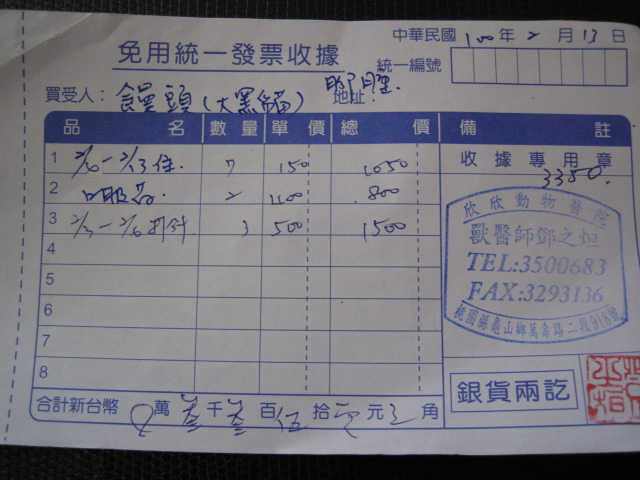 中華民國100年2月13日
免用統一發票收據
統一編號
買受人：饅頭(大黑貓) 地址：
品名 數量 單價 總價 備註
1 2/6-2/13住 7 150 1050 收據專用章
3350
2 口服藥 2 800
3 打針 3 500 1500
4
5
6
7
8
欣欣動物醫院
獸醫師鄧之烜
TEL:3500683
FAX:3293136
桃園縣龜山鄉萬壽路二段918號
銀貨兩訖
合計新台幣 0萬叁千叁百伍拾零元 角